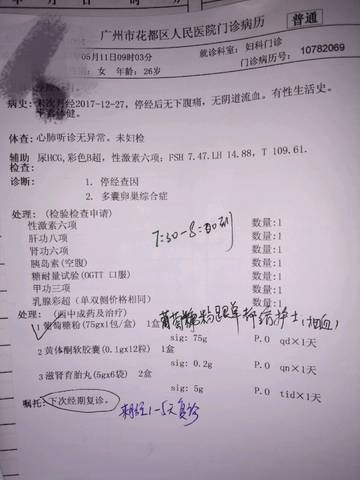 广州市花都区人民医院门诊病历
普通
05月11日09时03分
就诊科室: 妇科门诊
女 年龄: 26岁
门诊病历号: 10782069
病史: 末次月经2017-12-27, 停经后无下腹痛, 无阴道流血。有性生活史。
平素体健。
体查: 心肺听诊无异常。未妇检
辅助检查: 尿HCG,彩色B超, 性激素六项; FSH 7.47.LH 14.88, T 109.61.
诊断: 1. 停经查因
2. 多囊卵巢综合症
处理: (检验检查申请)
性激素六项 数量:1
肝功八项 数量:1
肾功六项 数量:1
胰岛素(空腹) 数量:1
糖耐量试验(OGTT 口服) 数量:1
甲功三项 数量:1
乳腺彩超 (单双侧价格相同) 数量:1
7:30-8:00到
处理: (西中成药及治疗)
葡萄糖粉跟单拆给护士(抽血)
1葡萄糖粉(75gx1包/盒) 1盒
sig: 75g P.O qd×1天
2黄体酮软胶囊(0.1gx12粒) 1盒
sig: 0.2g P.O qn×1天
3滋肾育胎丸(5gx6袋) 2盒
sig: 5g P.O tid×1天
嘱托: 下次经期复诊。
来经1-5天复诊